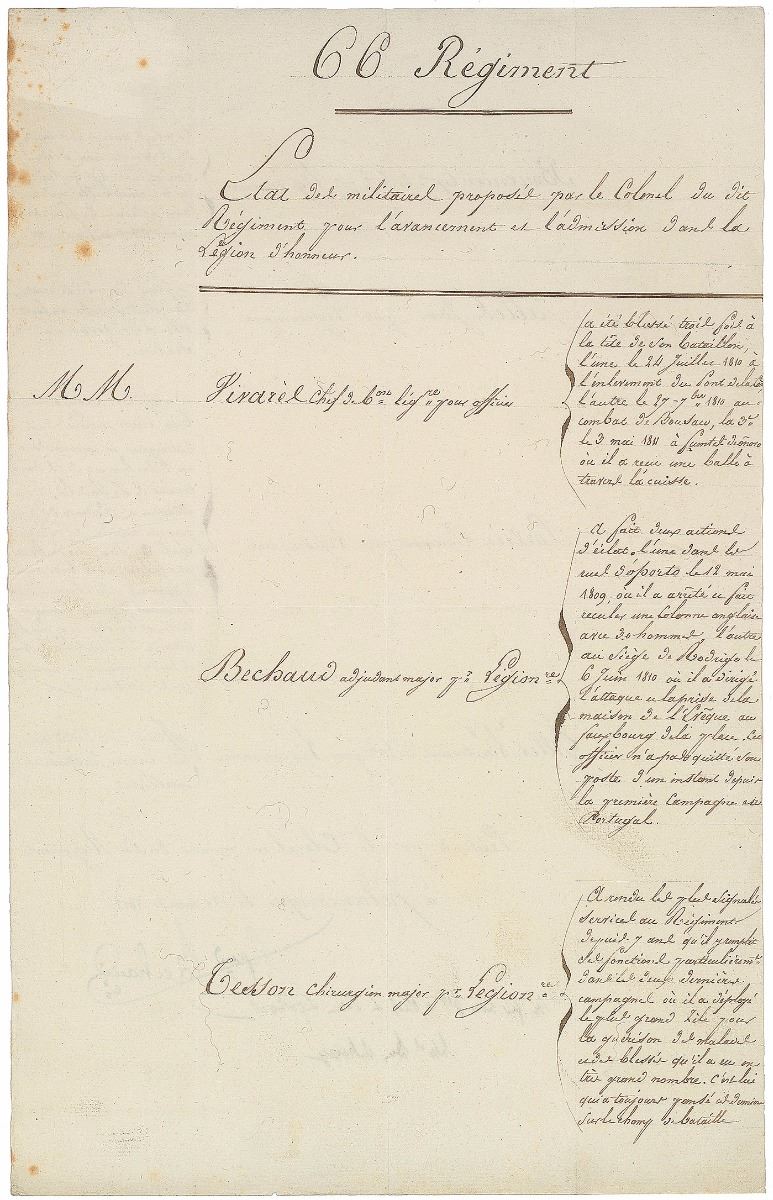 66 Régiment
Etat des militaires proposés par le Colonel du dit
Régiment pour l'avancement et l'admission dans la
Légion d'honneur.
M.M. Vivarèl chef de b.on légre pour officier
a été blessé trois fois à
la tête de son bataillon,
l'une le 24 Juillet 1810 à
l'enlevement du Pont de la
l'autre le 27 7bre 1810 au
combat de Bousaco, la 3e
le 3 mai 1811 à fuentes d'onoro
où il a recu une balle à
travers la cuisse.
Bechaud adjudant major pr Légionre
A fait deux actions
d'éclat, l'une dans les
rues d'oporto le 12 mai
1809, où il a arrêté et fait
reculer une Colonne anglaise
avec 30 hommes, l'autre
au siège de Rodrigo le
6 Juin 1810 où il a dirigé
l'attaque et la prise de la
maison de l'Evêque au
fauxbourg de la place. Cet
officier n'a pas quitté son
poste d'un instant depuis
la première Campagne de
Portugal.
Tesson chirurgien major pr Légionre
A rendu les plus signalés
services au Régiment
depuis 7 ans qu'il y remplit
ses fonctions particulièremt
dans les deux dernières
campagnes où il a déployé
le plus grand zèle pour
la guérison des malades
et des blessés qu'il a eu en
très grand nombre. c'est lui
qui a toujours pansé ces derniers
sur le champ de bataille